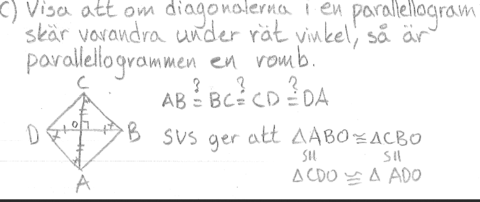 c) Visa att om diagonalerna i en parallellogram
skär varandra under rät vinkel, så är
parallellogrammen en romb.
C
D O B
A
AB ≟ BC ≟ CD ≟ DA
SVS ger att △ABO ≅ △CBO
≅ ≅
△CDO ≅ △ADO